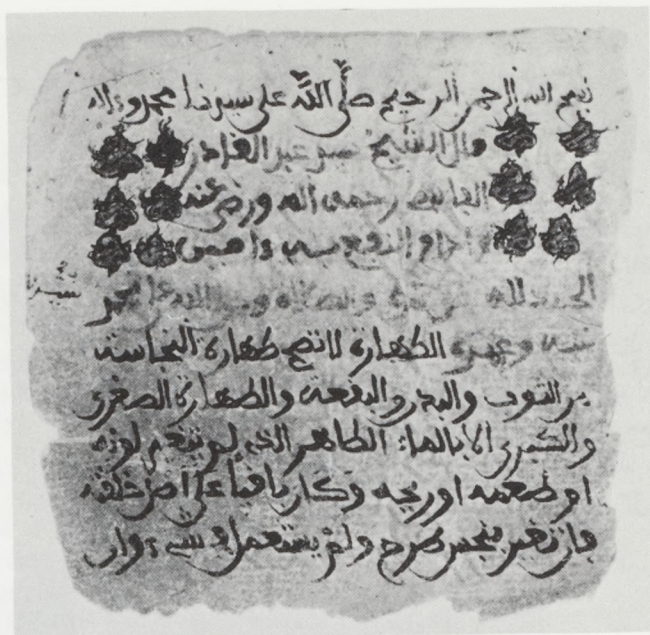 بسم الله الرحمن الرحيم صلَّى اللَّه على سيدنا محمد وءاله
قال الشيخ سيد عبد القادر
الفاسي رحمه الله ورضي عنه
والنفع به ءامين
الحمد لله والصلاة محمد
نبيه وعبده الطهارة لا تصح طهارة النجاسة
من الثوب والبدن والبقعة والطهارة الصغرى
والكبرى الا بالماء الطاهر الذي لم يتغير لونه
او طعمه او ريحه وكان باقيا على اصل خلقته
فان تغير بنجس طرح ولم يستعمل في شيء وان